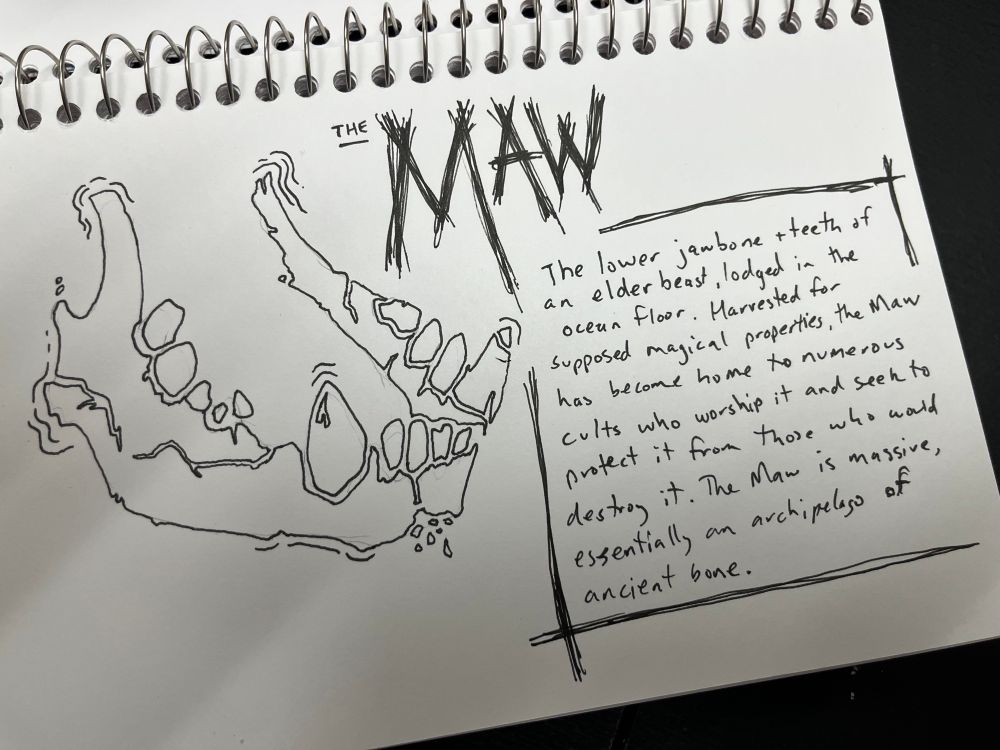 THE
MAW
The lower jawbone + teeth of
an elder beast, lodged in the
ocean floor. Harvested for
supposed magical properties, the Maw
has become home to numerous
cults who worship it and seek to
protect it from those who would
destroy it. The Maw is massive,
essentially an archipelago of
ancient bone.